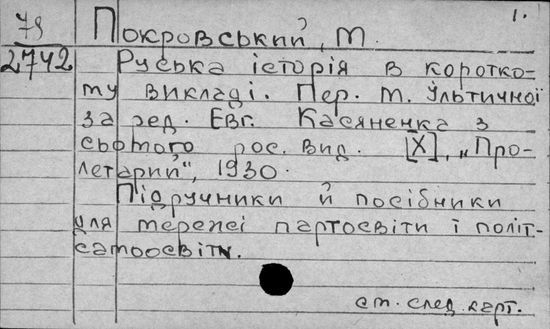 79
1.
2742
Покровський, М.
Руська історія в коротко-
му викладі. Пер. М. Ільтичної
за ред. Євг. Касяненка з
сьотого рос. вид. [Х], „Про-
летарий“, 1930.
Підручники й посібники
для мережі партосвіти і політ-
самоосвіти.
см. след. карт.